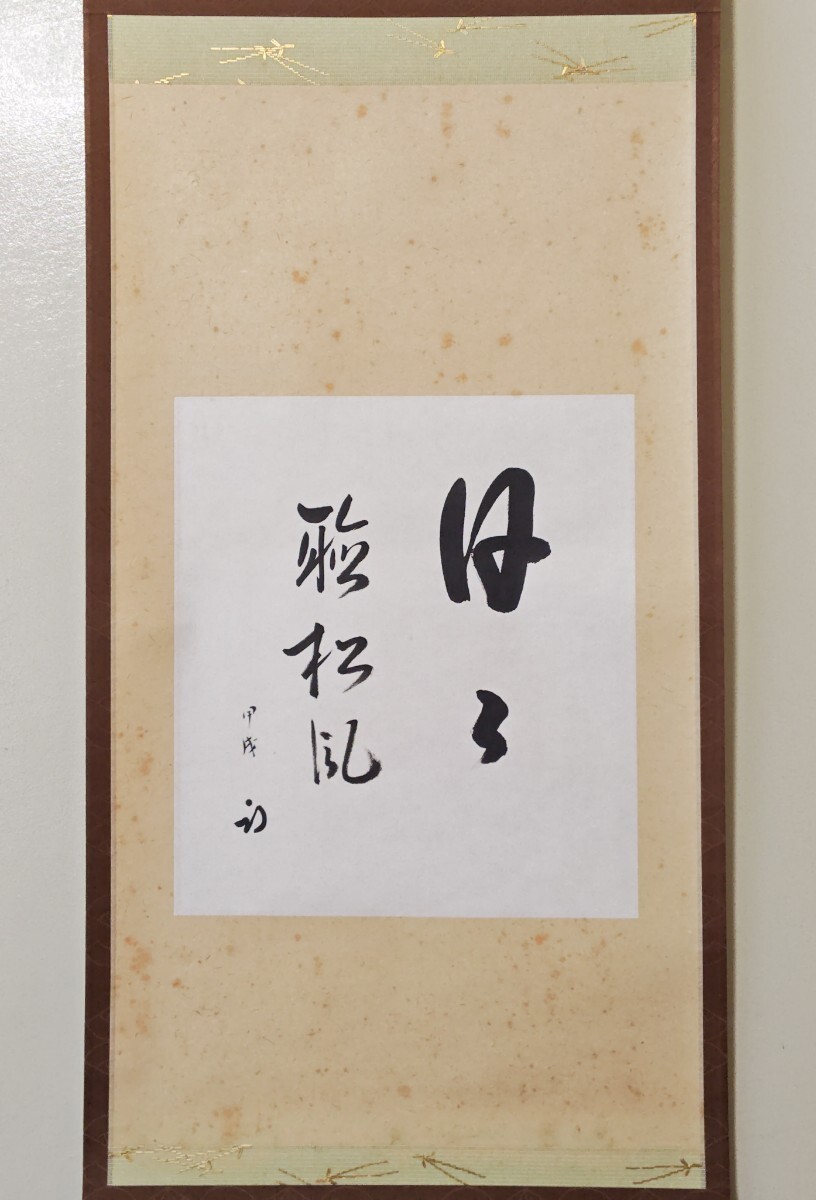 閑々
聴松風
甲戌